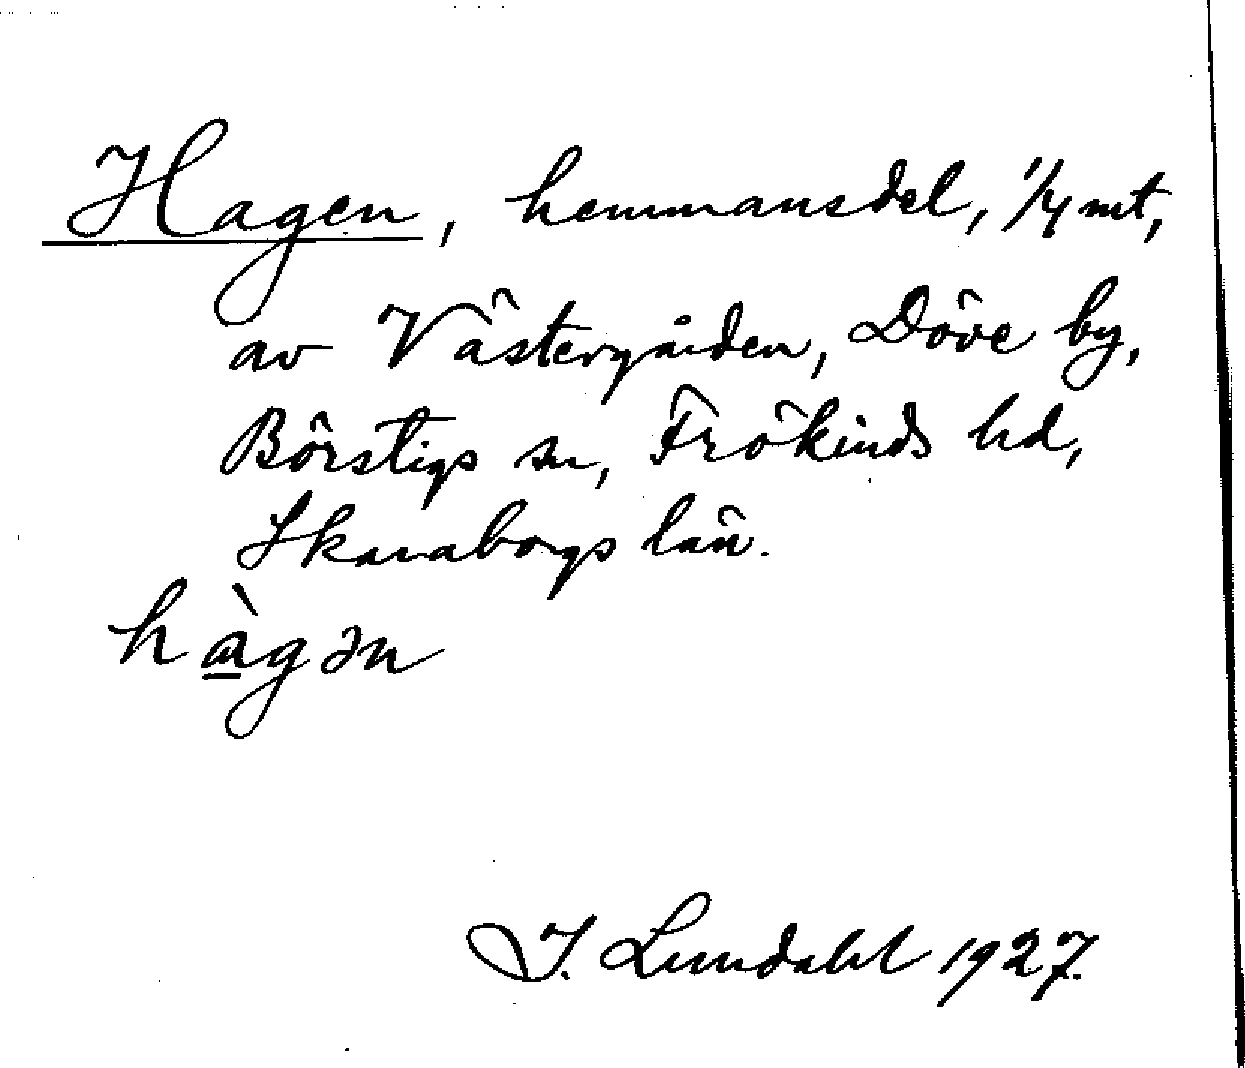 Hagen, hemmansdel, 1/4 mt,
av Västergården, Döve by,
Börstigs sn, Frökinds hd,
Skaraborgs län.
hàgən
I. Lundahl 1927.